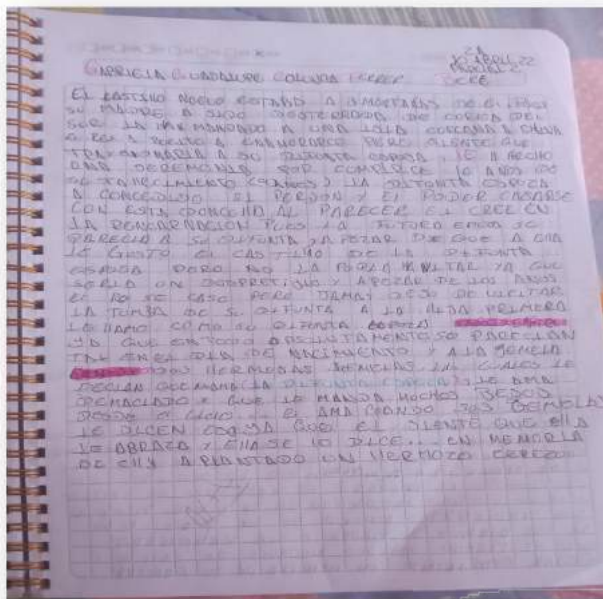 2A
20 ABRIL 22
PARCIAL 2
GABRIELA GUADALUPE
EL CASTILLO NUEVO ESTARO A
SU MADRE A SIDO DESTERRADA DE COREA DEL
SUR LA HAN MANDADO A UNA ISLA CERCANA A CHINA
EL REY A VUELTO A ENAMORARCE PERO SIENTE QUE
TRAICIONARIA A SU DIFUNTA ESPOSA, LE A HECHO
UNA SEREMONIA POR CUMPLIRCE 10 AÑOS DE
SU FAYECIMIENTO LA DIFUNTA ESPOZA
A CONCEDIDO EL PERDON Y EL PODER CASARSE
CON ESTA DONCELLA AL PARECER EL CREE EN
LA REENCARNACION PUES LA FUTURA ESPOSA SE
PARECIA A SU DIFUNTA, A PEZAR DE QUE A ELLA
LE GUSTO EL CASTILLO DE LA DIFUNTA
ESPOSA PERO NO LA PODIA HABITAR YA QUE
SERIA UN DESPRESTIJIO Y APEZAR DE LOS AÑOS
EL REY SE CASO PERO JAMAS DEJO DE VICITAR
LA TUMBA DE SU DIFUNTA A LA HIJA PRIMERA
LA LLAMO COMO SU DIFUNTA
YA QUE EN TODO ABSOLUTAMENTE SE PARECIAN
EN EL DIA DE NACIMIENTO Y A LA GEMELA
DOS HERMOSAS GEMELAS LAS CUALES LE
DECIAN QUE MAMA (LA DIFUNTA ESPOSA) LE AMA
DEMACIADO Y QUE LE MANDA MUCHOS BESOS
DESDE EL CIELO... EL AMA CUANDO SUS GEMELAS
LE DICEN ESO YA QUE EL SIENTE QUE ELLA
LE ABRAZA Y ELLA SE LO DICE... EN MEMORIA
DE ELLA A PLANTADO UN HERMOZO CEREZO